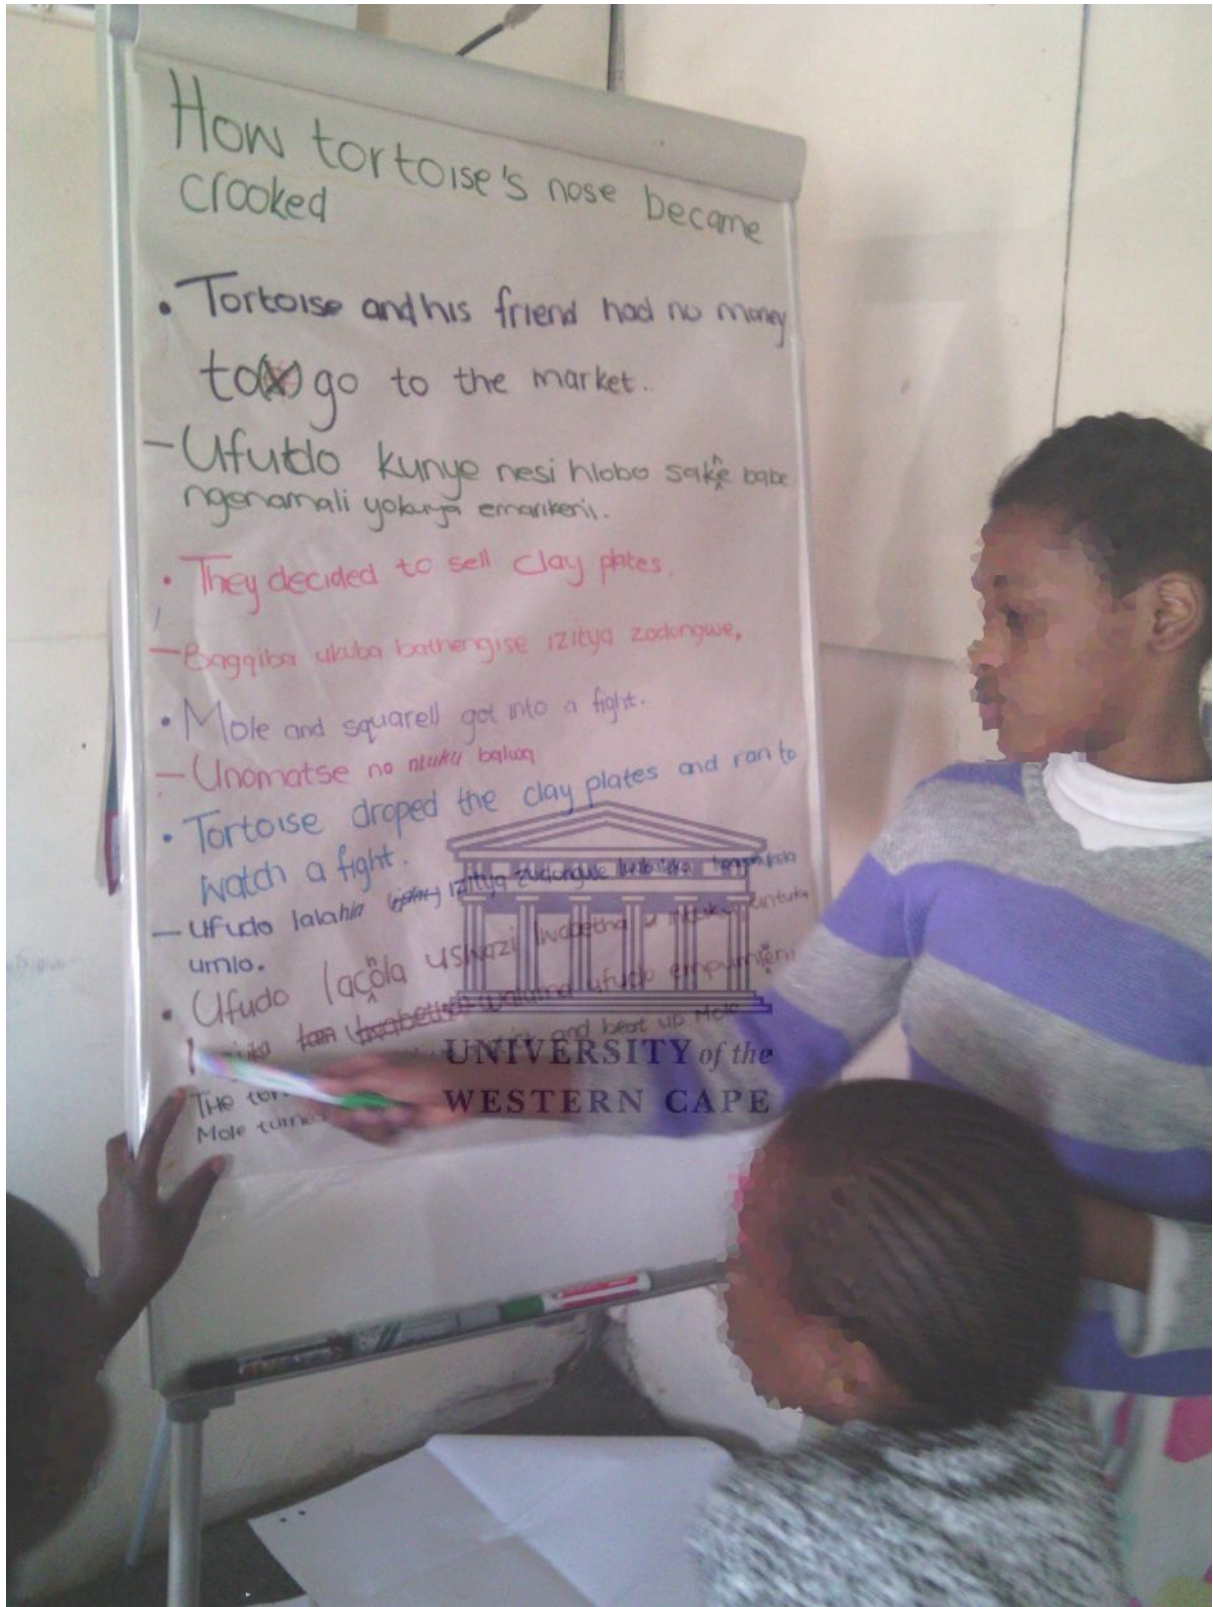 How tortoise's nose became
crooked
• Tortoise and his friend had no money
to go to the market..
– Ufudo kunye nesi hlobo sakhe babe
ngenamali yokuya emarikeni.
• They decided to sell clay plates.
– Bagqiba ukuba bathengise izitya zodongwe,
• Mole and squarell got into a fight.
– Unomatse no ntuku balwa
• Tortoise droped the clay plates and ran to
watch a fight.
– Ufudo lalahla izitya zodongwe
umlo.
• Ufudo lachola uswazi lwabetha
ufudo empumlweni
and beat up Mole
The
Mole turned
UNIVERSITY of the
WESTERN CAPE